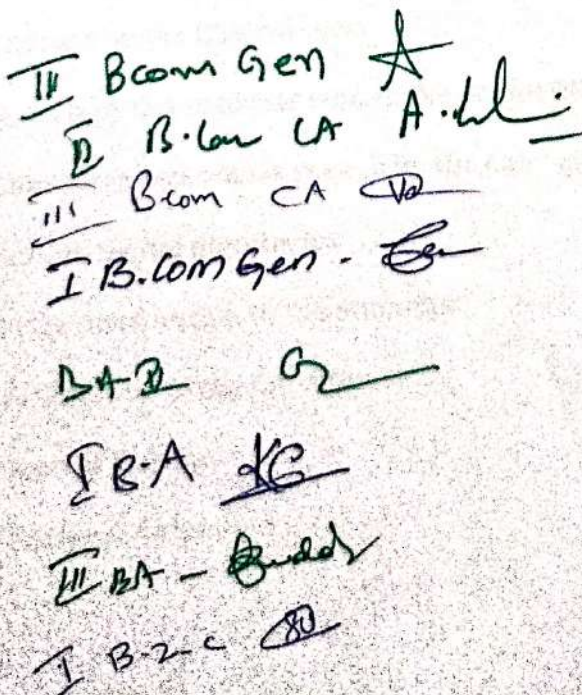 III Bcom Gen
II B.Com CA
III Bcom CA
I B.Com Gen -
BA-II
I B.A KG
III BA -
I B-Z-C